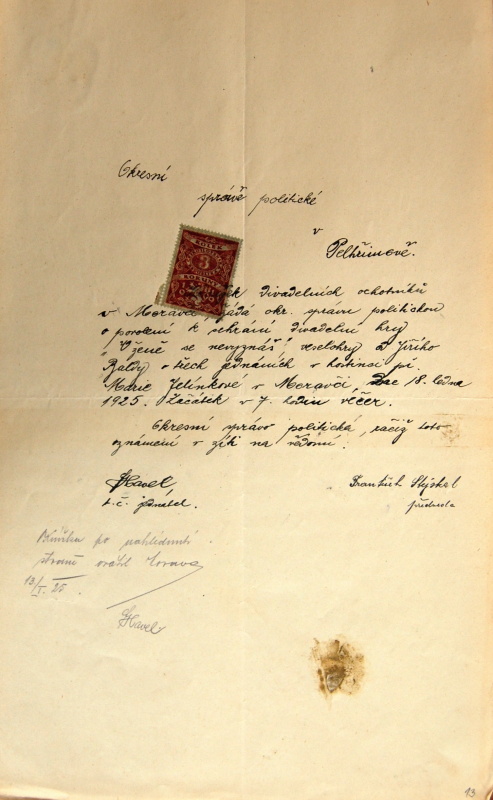 Okresní
správě politické
v
Pelhřimově.
KOLEK
3
KORUNY
divadelních ochotníků
v Moravči žádá okr. správu politickou
o povolení k sehrání divadelní hry
„V ženě se nevyznáš", veselohry od Jiřího
Baldy o třech jednáních v hostinci pí.
Marie Jelínkové v Moravči, dne 18. ledna
1925. Začátek v 7. hodin večer.
Okresní správo politická, račiž toto
oznámení v zíti na vědomí.
JHavel,
t. č. jednatel.
František Stýskal
předseda
Knížku po nahlédnutí
straně vrátil
13/I. 25
JHavel
13